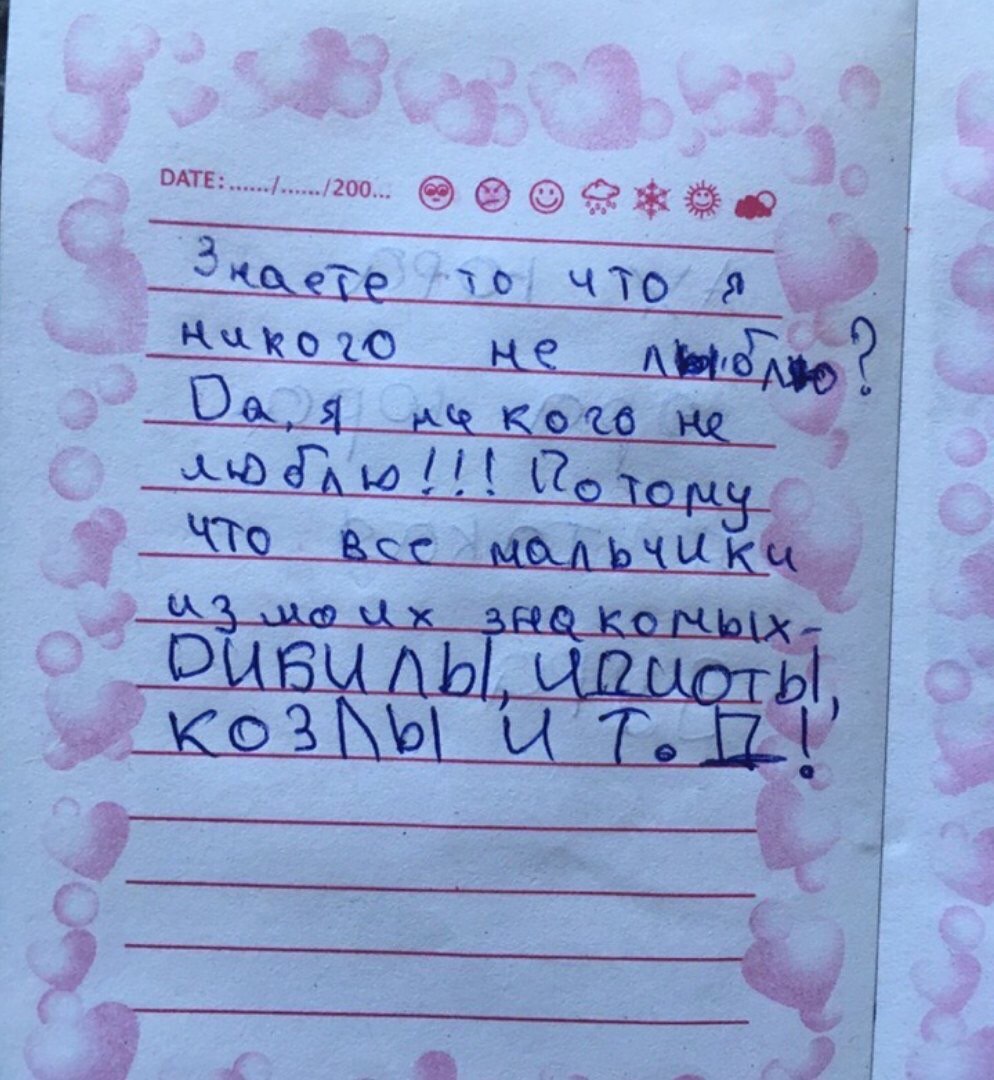 DATE:....../....../200...
Знаете то что я
никого не люблю?
Да, я никого не
люблю!!! Потому
что все мальчики
из моих знакомых-
ДИБИЛЫ, ИДИОТЫ,
КОЗЛЫ И Т. Д!